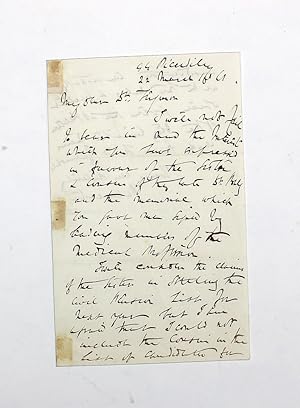 94 Piccadilly
22 March 1861
My dear Dr.
I will not fail
to bear in mind the
which you have expressed
in favour of the Sister
& Cousin of the late Dr
and the memorial which
you gave me signed by
leading members of the
Medical Profession.
I will consider the claims
of the Sister in settling the
Civil Pension List for
next year but I am
afraid that I could not
include the Cousin in the
List of Candidates for